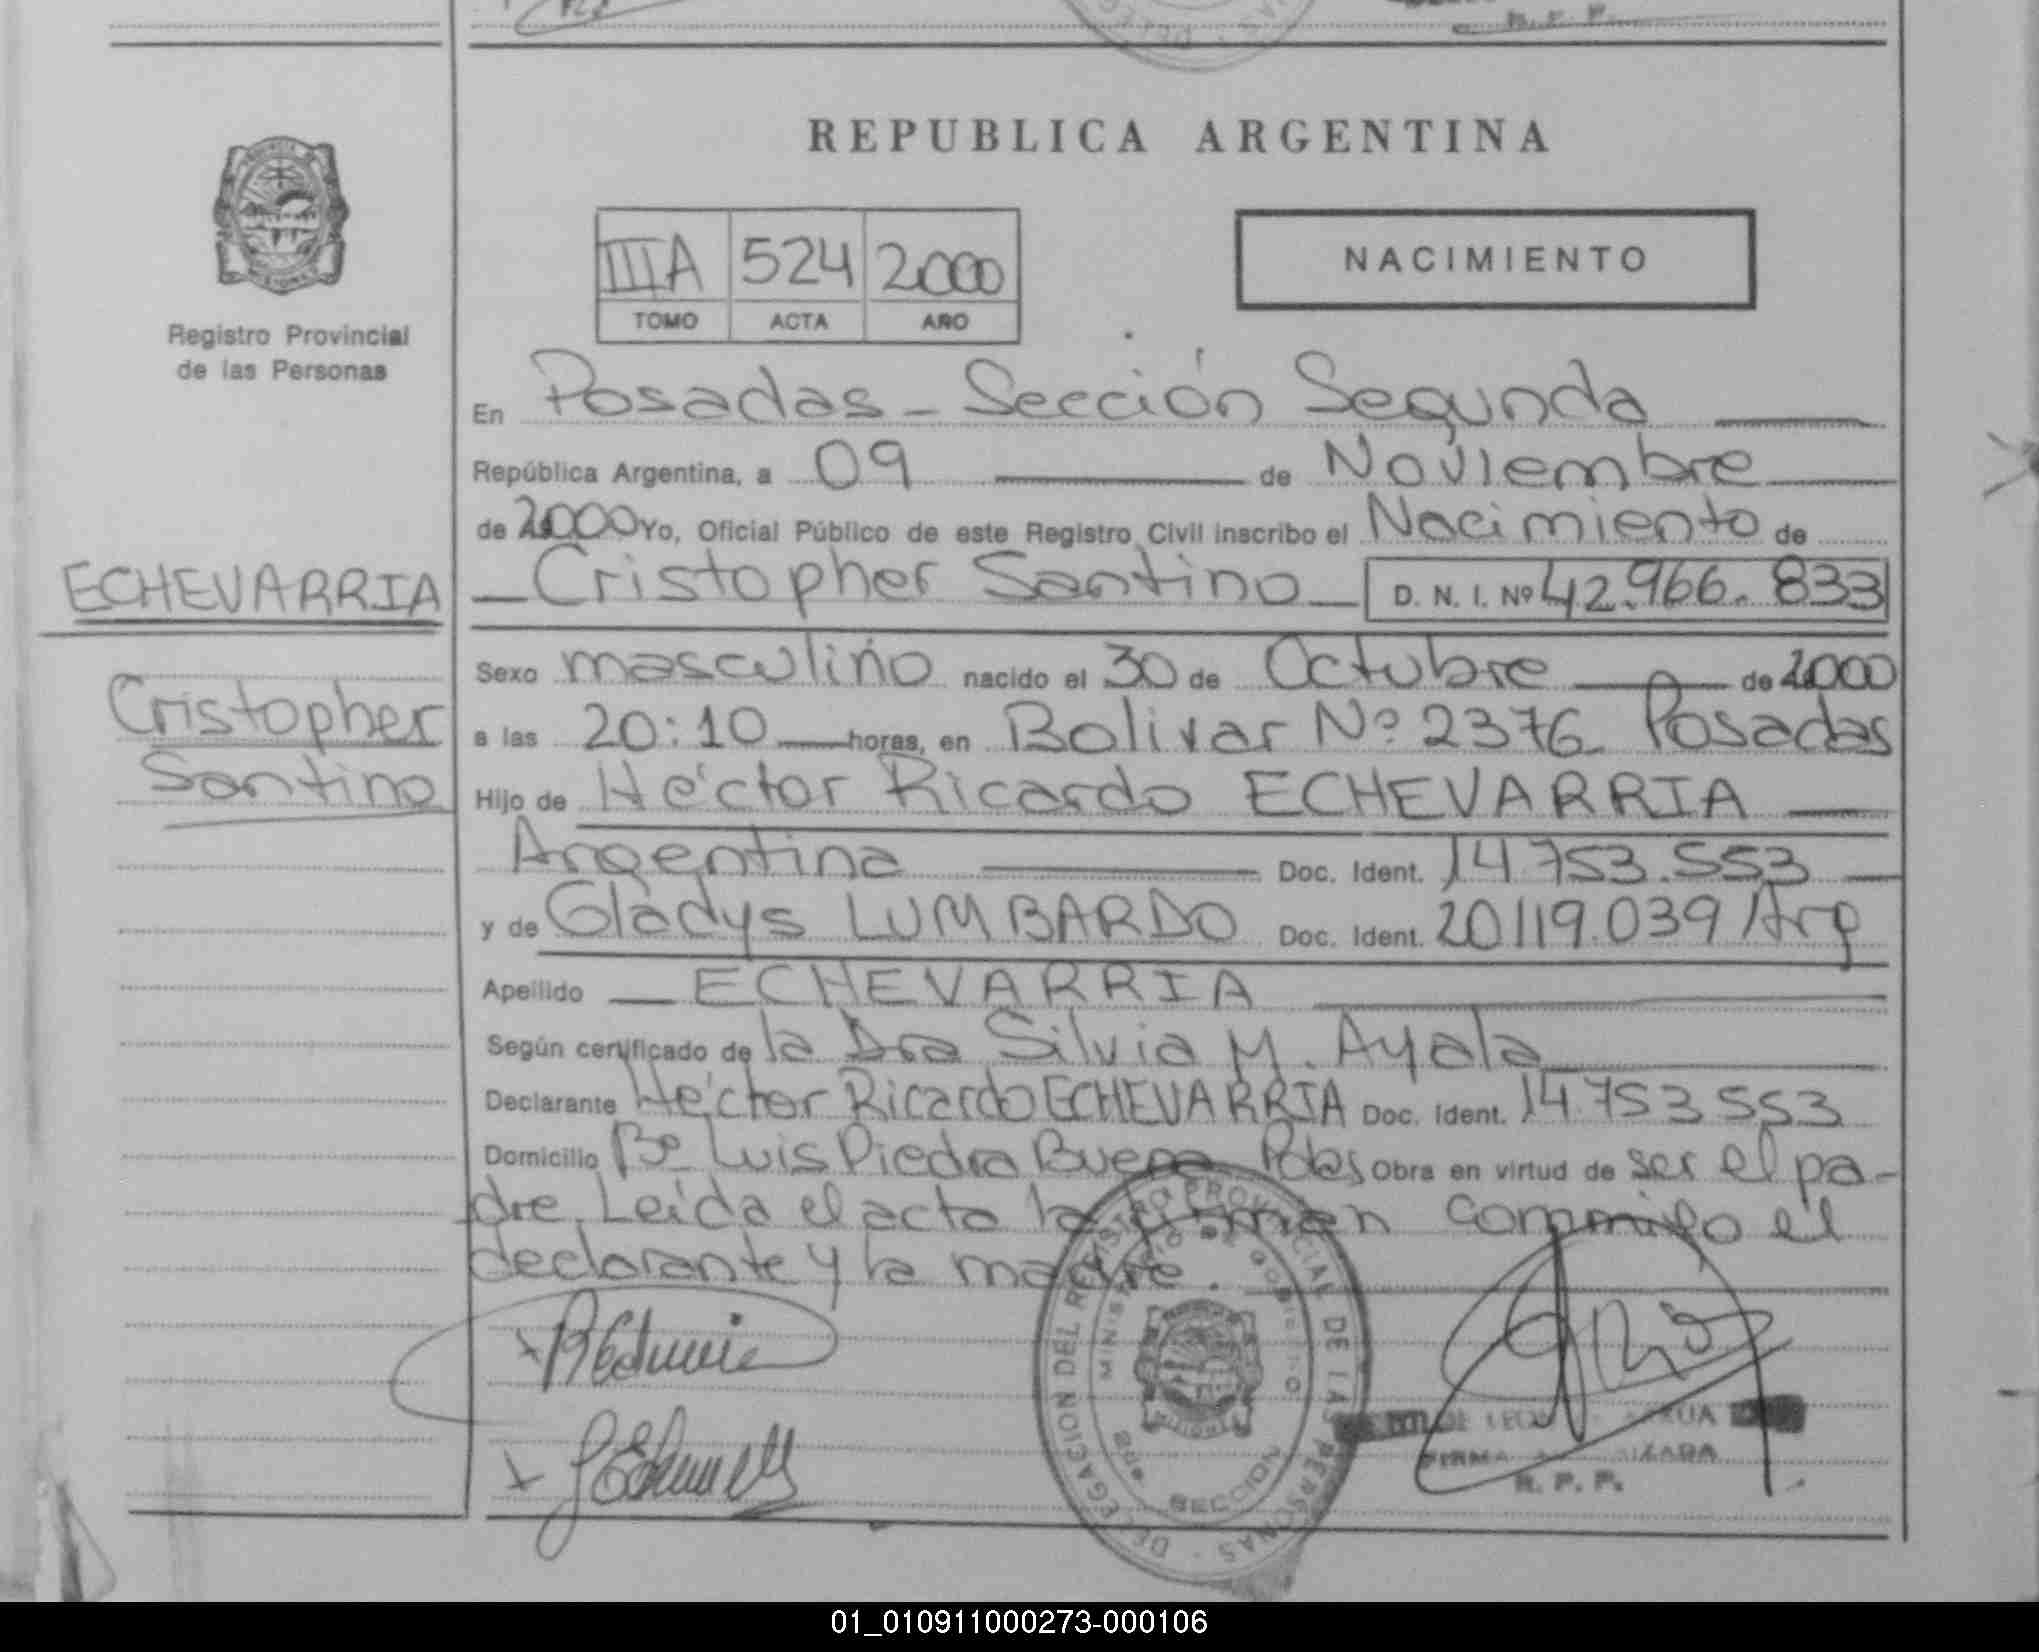 R. P. P.
REPUBLICA ARGENTINA
IIIA 524 2000
TOMO ACTA AÑO
NACIMIENTO
Registro Provincial
de las Personas
En Posadas - Sección Segunda
República Argentina, a 09 de Noviembre
de 2000 Yo, Oficial Público de este Registro Civil inscribo el Nacimiento de
ECHEVARRIA
Cristopher Santino D. N. I. Nº 42.966.833
Cristopher
Santino
Sexo masculino nacido el 30 de Octubre de 2000
a las 20:10 horas, en Bolivar Nº 2376 Posadas
Hijo de Héctor Ricardo ECHEVARRIA
Argentina Doc. Ident. 14.753.553
y de Gladys LUMBARDO Doc. Ident. 20119.039 Arg
Apellido ECHEVARRIA
Según certificado de la Dra Silvia M. Ayala
Declarante Héctor Ricardo ECHEVARRIA Doc. Ident. 14.753 553
Domicilio Bº Luis Piedra Buena Pdas Obra en virtud de ser el pa-
dre. Leida el acta la firman conmigo el
declarante y la madre.
DELEGACION DEL REGISTRO PROVINCIAL DE LAS PERSONAS
MINISTERIO DE GOBIERNO
SECCION
DE
FIRMA
R. P. P.
01_010911000273-000106